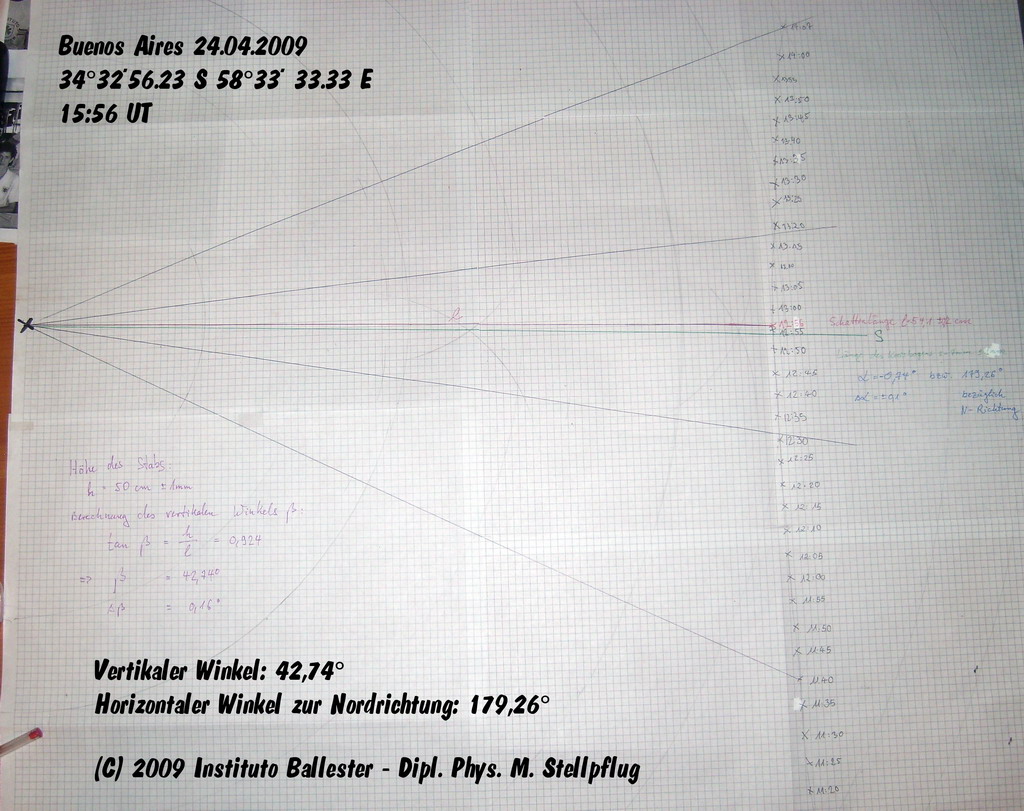 Buenos Aires 24.04.2009
34°32'56.23 S 58°33' 33.33 E
15:56 UT
14:07
14:00
13:50
13:45
13:40
13:35
13:30
13:25
13:20
13:15
13:10
13:05
13:00
12:55
12:50
12:45
12:40
12:35
12:30
12:25
12:20
12:15
12:10
12:05
12:00
11:55
11:50
11:45
11:40
11:35
11:30
11:25
11:20
l
Schattenlänge l=54,1 cm
S
Länge des
α = -0,74° bzw. 179,26°
Δα = ±0,1° bezüglich
N-Richtung
Höhe des Stabs:
h = 50 cm ± 1mm
Berechnung des vertikalen Winkels β:
tan β = h/l = 0,924
=> β = 42,74°
Δβ = 0,16°
Vertikaler Winkel: 42,74°
Horizontaler Winkel zur Nordrichtung: 179,26°
(C) 2009 Instituto Ballester - Dipl. Phys. M. Stellpflug